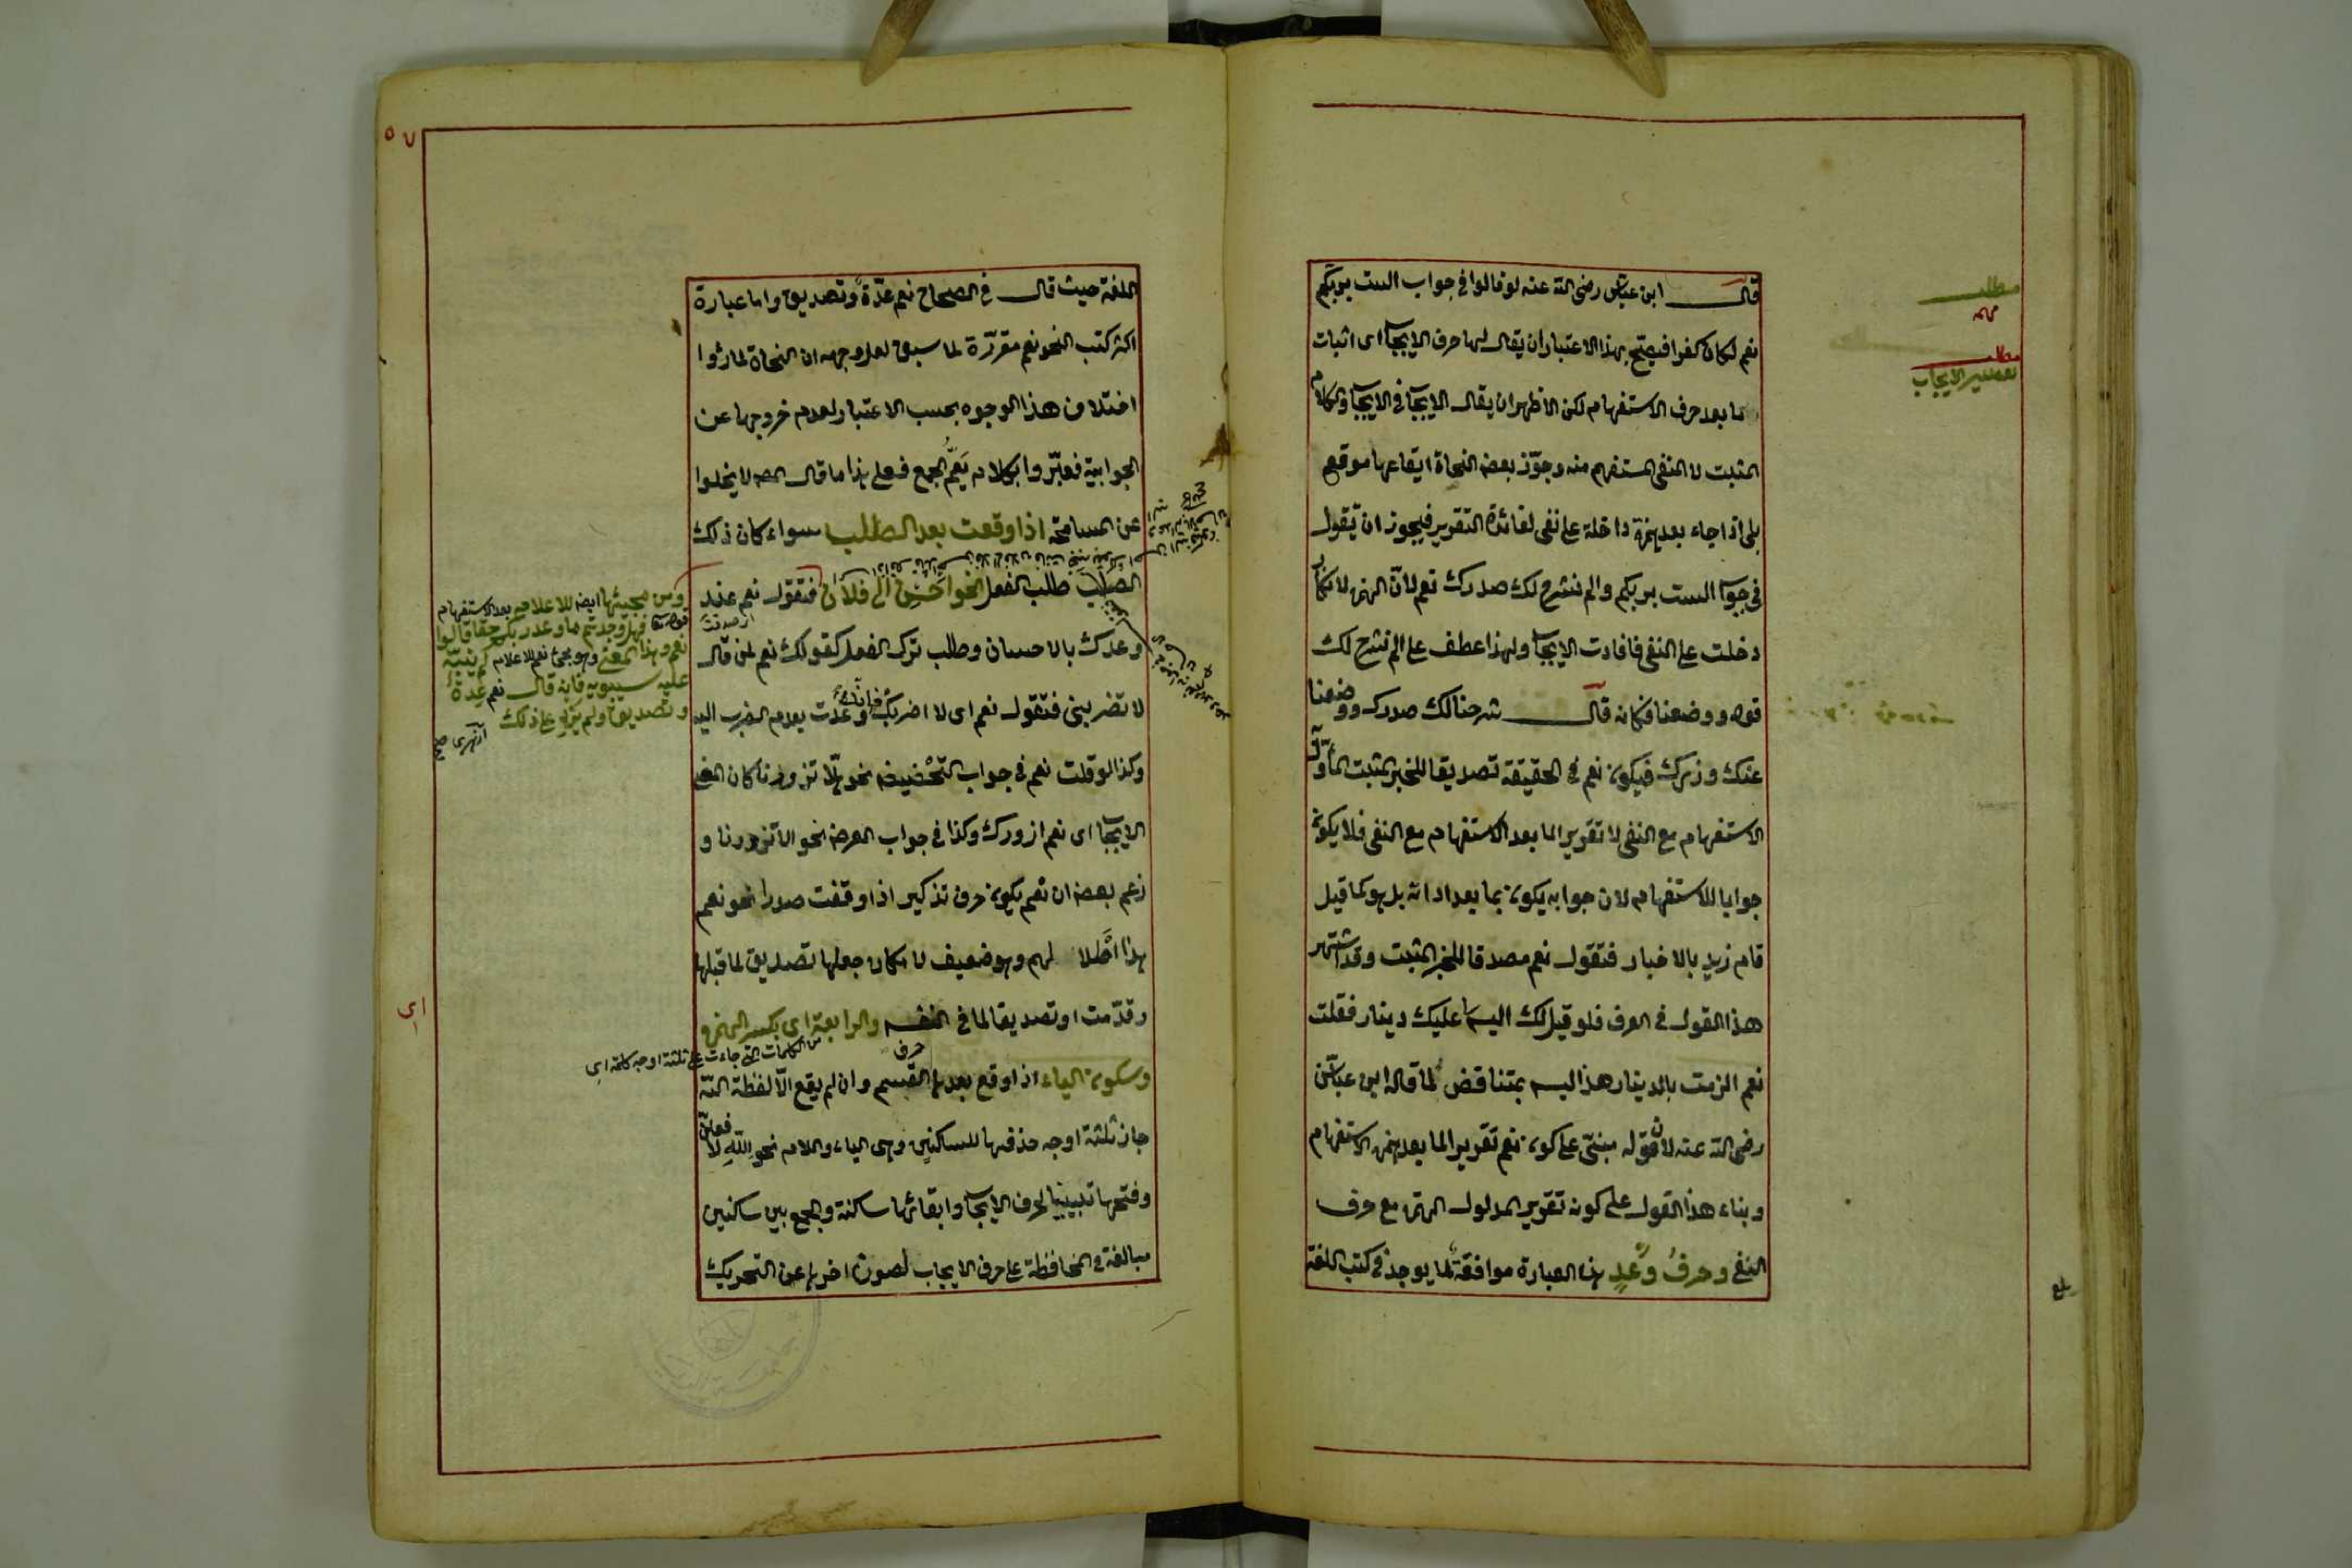 قال ابن عباس رضى الله عنه لو قالوا فى جواب الست بربكم
نعم لكان كفرا فيصح بهذا الاعتبار ان يقال لها حرف الايجاب اى اثبات
ما بعد حرف الاستفهام لكن الاظهر ان يقال الايجاب فى الايجاب والكلام
المثبت لا المنفى المستفهم منه وجوّز بعض النحاة ايقاعها موقع
بلى اذا جاء بعد همزة داخلة على نفى لفائدة التقرير فيجوز ان تقول
فى جواب الست بربكم والم نشرح لك صدرك نعم لانّ الهمزة للانكار
دخلت على النفى فافادت الايجاب ولهذا عطف على الم نشرح لك
قوله ووضعنا فكانه قال شرحنا لك صدرك ووضعنا
عنك وزرك فيكون نعم فى الحقيقة تصديقا للخبر المثبت المأوّل
الاستفهام مع النفى لا تقريرا لما بعد الاستفهام مع النفى فلا يكون
جوابا للاستفهام لان جوابه يكون بما بعد اداته بل هو كما قيل
قام زيد بالاخبار فتقول نعم مصدقا للخبر المثبت وقد اشتهر
هذا القول فى العرف فلو قيل لك اليس عليك دينار فقلت
نعم الزمت بالدينار هذا ليس بمتناقض لما قاله ابن عباس
رضى الله عنه لانّ قوله مبنىّ على كون نعم تقريرا لما بعد همزة الاستفهام
وبناء هذا القول على كونه تقرير المدلول الهمزة مع حرف
النفى وحرفُ وَعْدٍ هذه العبارة موافقة لما يوجد فى كتب اللغة
مطلب
مهمه
مطلب
تفسير الايجاب
بلغ
٥٧
اللغة حيث قال فى الصحاح نعم عدّةٌ وتصديق واما عبارة
اكثر كتب النحو نعم مقرّرة لما سبق لعل وجهه ان النحاة لما رأوا
اختلاف هذا الوجوه بحسب الاعتبار لعدم خروجها عن
الجوابية فعبّروا بكلام يَعُمُّ الجمع فعلى هذا ما قال المص لا يخلوا
عن المسامحة اذا وقعت بعد الطلب سواء كان ذلك
الطلب طلب الفعل نحو اَحْسِنْ الى فلان فتقول نعم عند
وعدك بالاحسان وطلب ترك الفعل كقولك نعم لمن قال
لا تضربنى فتقول نعم اى لا اضربك فانك وعدت بعدم الضرب اليه
وكذا لو قلت نعم فى جواب التحْضيض نحو هلّا تزورنا كان المعنى
الايجاب اى نعم ازورك وكذا فى جواب العرض نحو الا تزورنا و
زعم بعض ان نعم يكون حرف تذكير اذا وقعت صدرا نحو نعم
هذا اَطْلال لهم وهو ضعيف لامكان جعلها تصديق لما قبلها
وقدّمت او تصديقا لما فى النفس والرابعة اى بكسر الهمزة و
وسكون الياء اذا وقع بعدها القسم وان لم يقع الّا لفظة الله
جاز ثلثة اوجه حذفها للساكنين وهى الياء واللام نحو اللهِ لا فعلنّ
وفتحها تبيينا لحرف الايجاب وابقائها ساكنة والجمع بين ساكنين
مبالغة فى المحافظة على حرف الايجاب لصون اخرها عن التحريك
ومن مجيئها ايضا للاعلام بعد الاستفهام
قوله تعا فهل وجدتم ما وعد ربكم حقا قالوا
نعم وهذا المعنى وهو مجئ نعم للاعلام لم ينبّه
عليه سيبويه فانه قال نعم عِدةٌ
وتصديق ولم يزد على ذلك
ازهرى صح
حرف
من الكلمات التى جاءت على ثلثة اوجه كلمة اى
اى